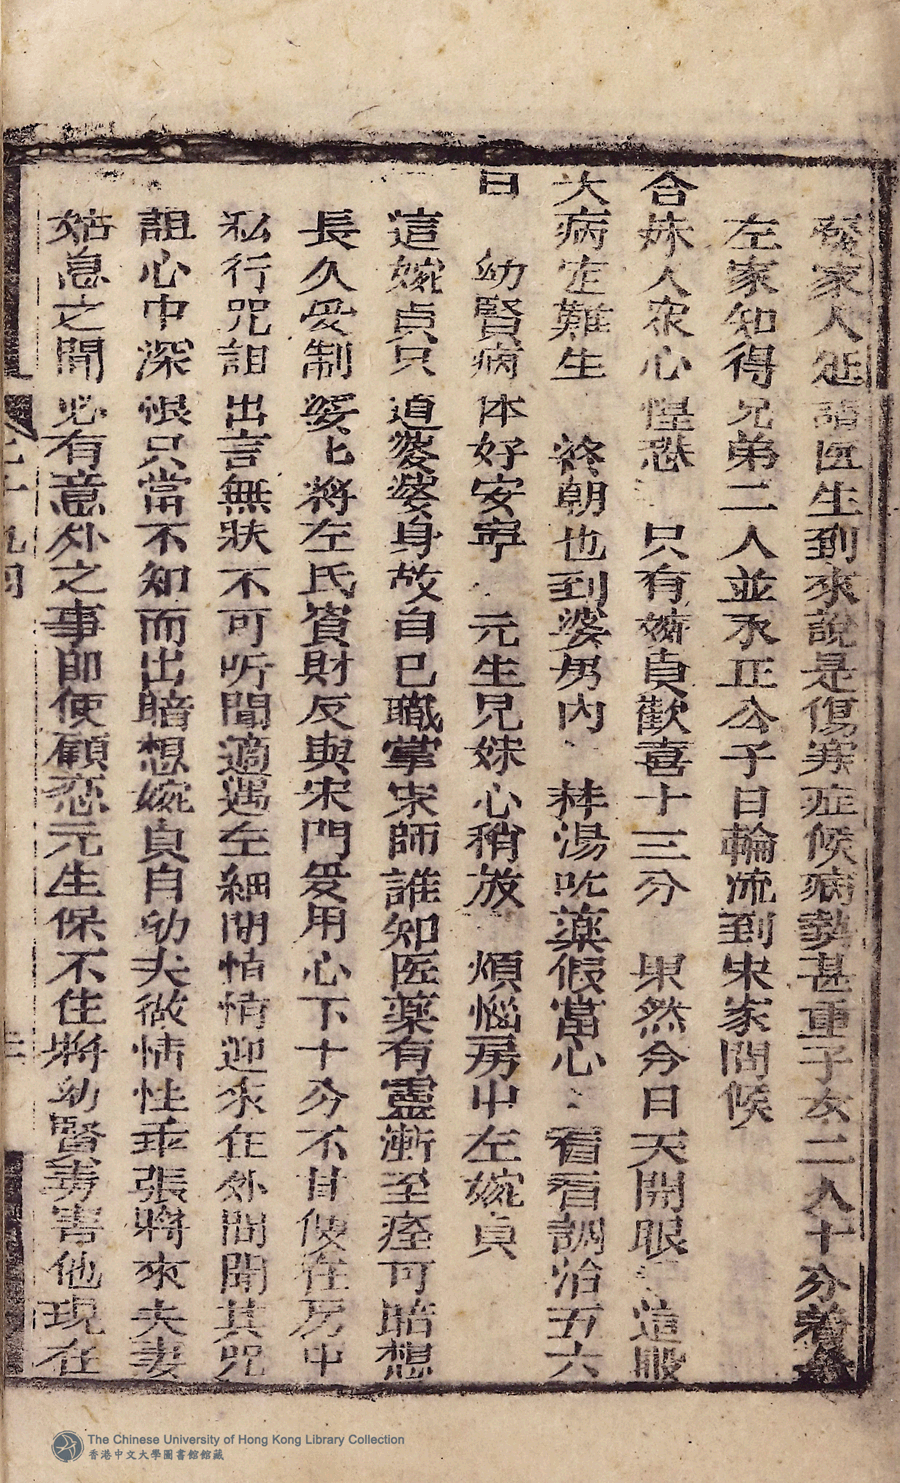 發家人延請医生到來說是傷寒症候病勢甚重子女二人十分着急
左家知得兄弟二人並承正公子日輪流到宋家問候
合妹人衆心惶恐 只有婉貞歡喜十三分 果然今日天開眼 這般
大病定難生 終朝也到婆房內 捧湯吃藥假當心 看看調治五六
日 幼賢病体好安寧 元生兄妹心稍放 煩惱房中左婉貞
這婉貞只道婆婆身故自已職掌宋師誰知医藥有靈漸至痊可暗想
長久受制婆匕將左氏資財反與宋門受用心下十分不甘便在房中
私行咒詛出言無狀不可听聞適遇左細閒怕情迎來在外間聞其咒
詛心中深恨只當不知而出暗想婉貞自幼夫做情性乖張將來夫妻
姑息之間必有意外之事即使顧恋元生保不住將幼賢弄害他現在
二十九回